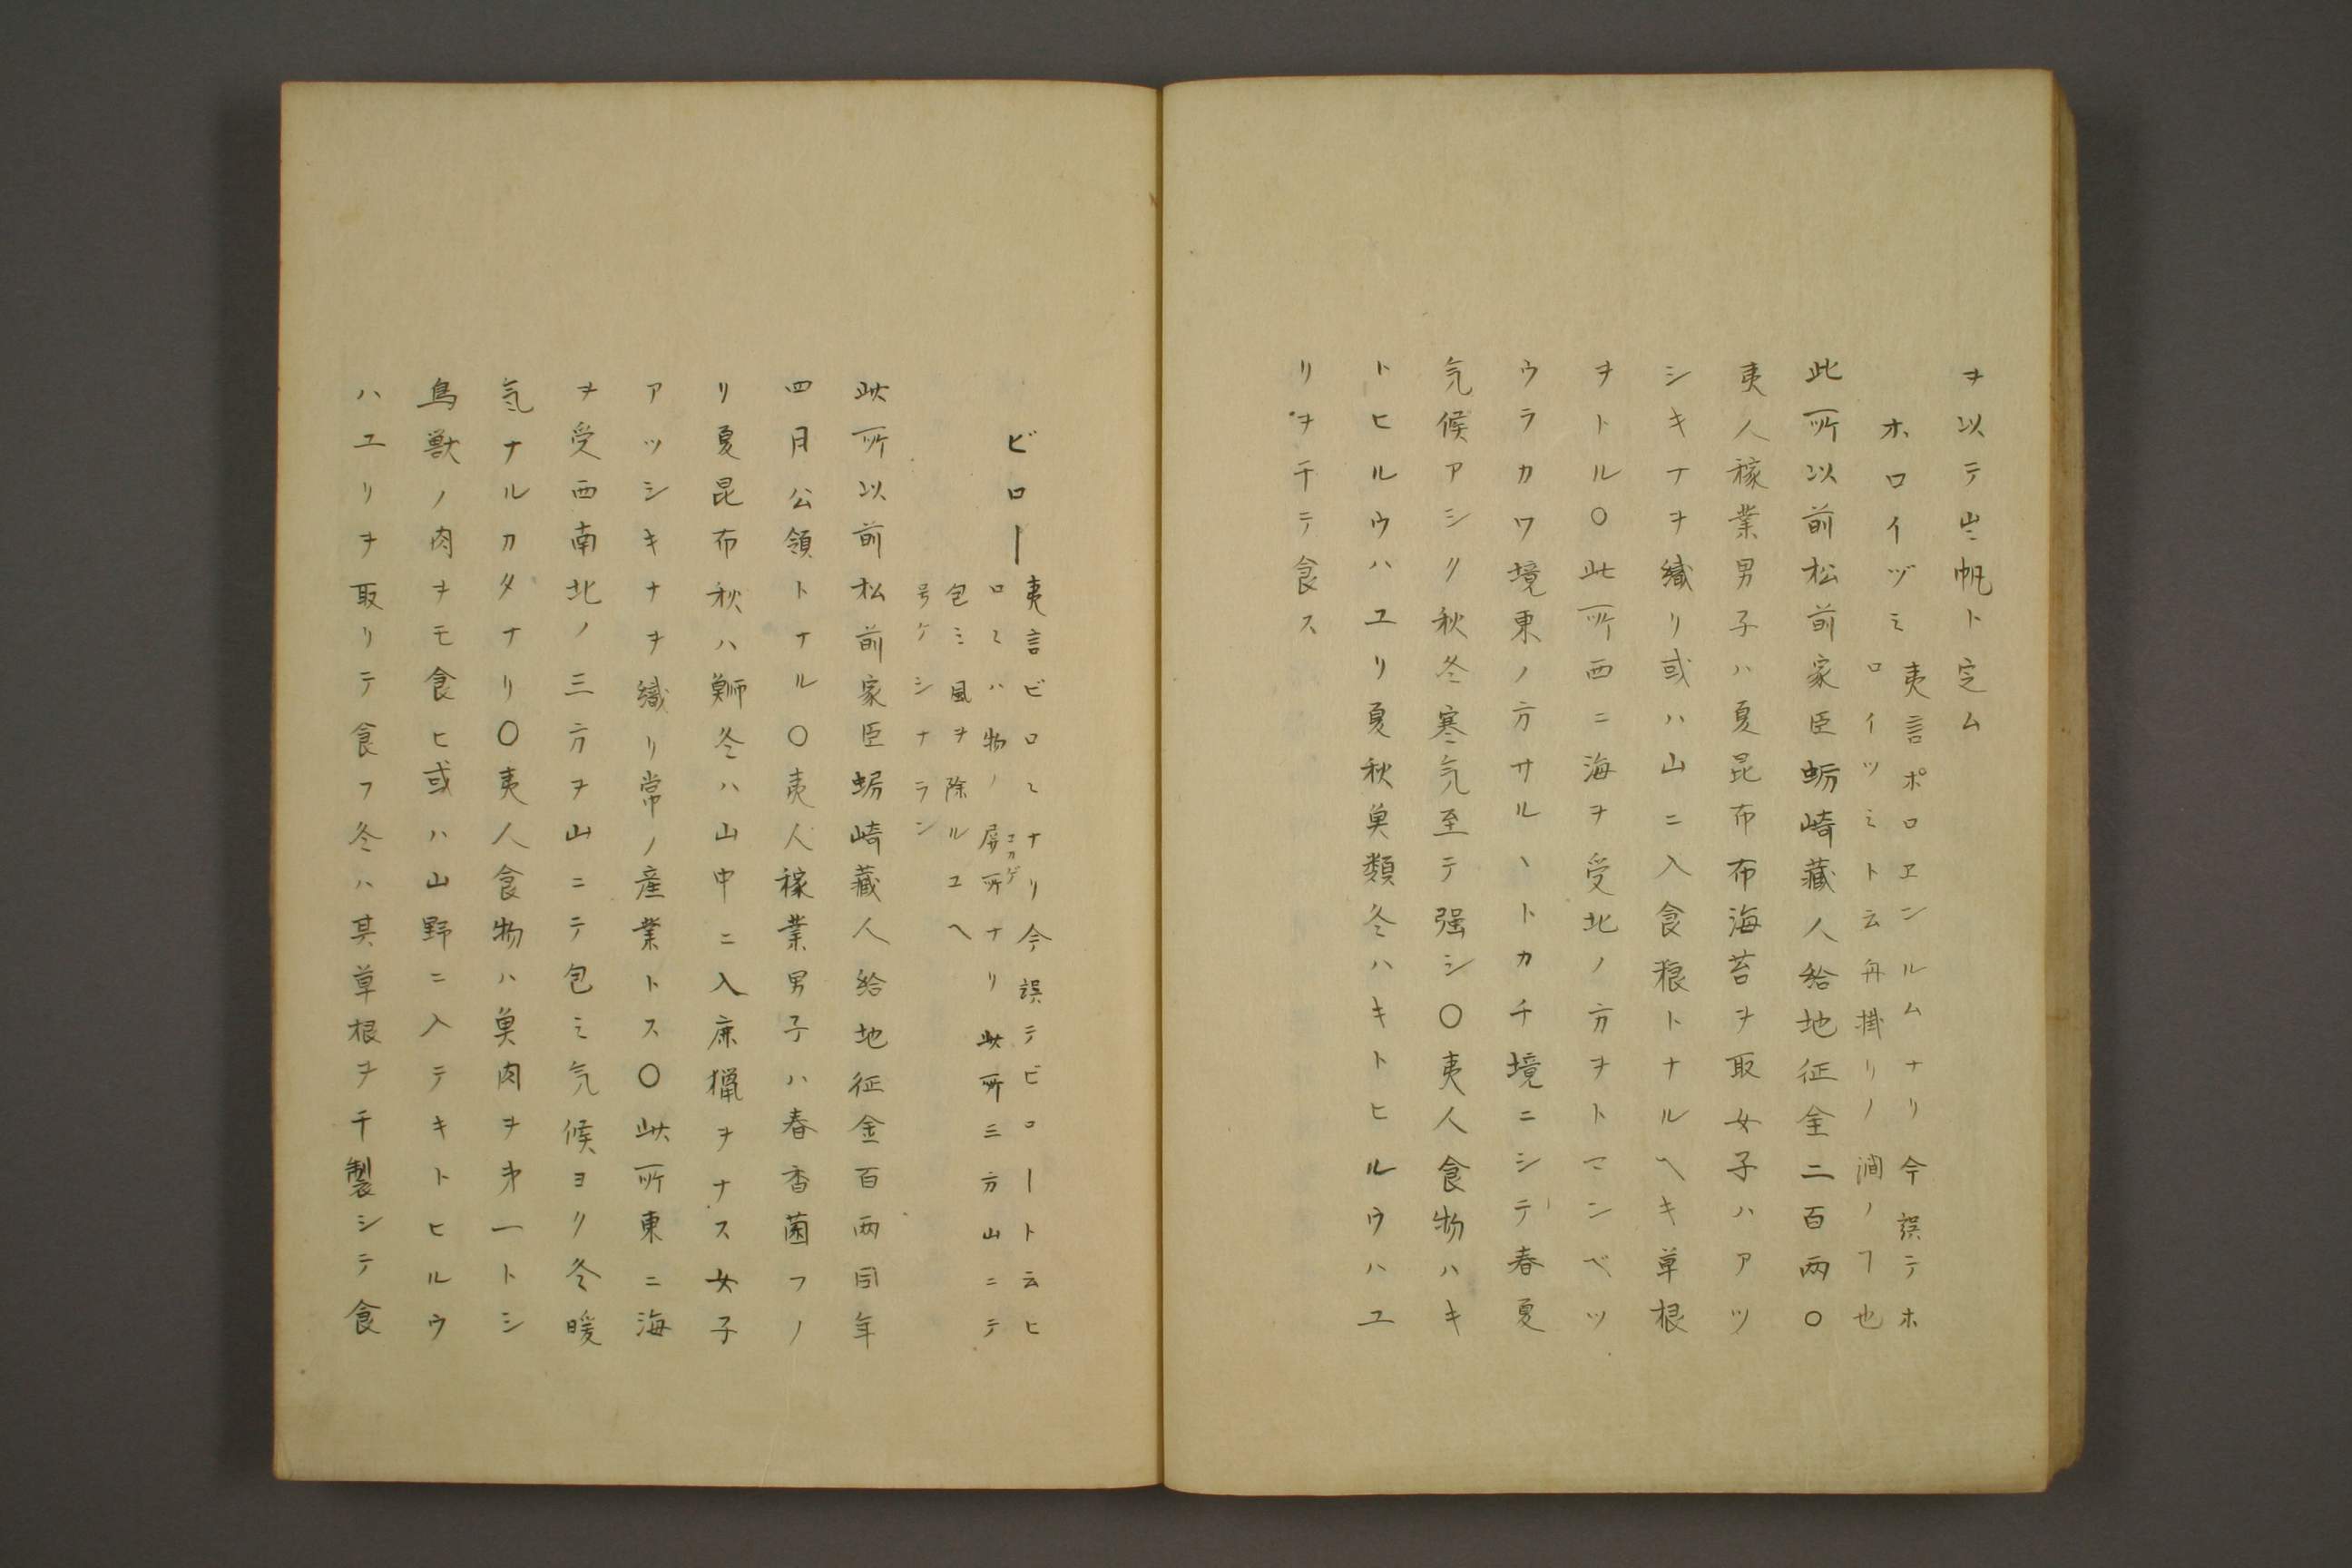 ヲ以テ出帆ト定ム
ホロイヅミ 夷言ポロヱンルムナリ今誤テホ
ロイツミト云舟掛リノ澗ノヿ也
此所以前松前家臣蛎崎藏人給地征金二百両〇
夷人稼業男子ハ夏昆布布海苔ヲ取女子ハアツ
シキナヲ織リ或ハ山ニ入食粮トナルヘキ草根
ヲトル〇此所西ニ海ヲ受北ノ方ヲトマンベツ
ウラカワ境東ノ方サルヽトカチ境ニシテ春夏
気候アシク秋冬寒気至テ强シ〇夷人食物ハキ
トヒルウハユリ夏秋魚類冬ハキトヒルウハユ
リヲ干テ食ス
ビロー 夷言ビロヽナリ今誤テビロート云ヒ
ロヽハ物ノ屏所ナリ此所三方山ニテ
コカゲ
包ミ風ヲ除ルユヘ
号ケシナラン
此所以前松前家臣蛎崎藏人給地征金百両同年
四月公領トナル〇夷人稼業男子ハ春香菌フノ
リ夏昆布秋ハ鰤冬ハ山中ニ入鹿獵ヲナス女子
アツシキナヲ織リ常ノ産業トス〇此所東ニ海
ヲ受西南北ノ三方ヲ山ニテ包ミ気候ヨク冬暖
氣ナルカタナリ〇夷人食物ハ魚肉ヲ第一トシ
鳥獣ノ肉ヲモ食ヒ或ハ山野ニ入テキトヒルウ
ハユリヲ取リテ食フ冬ハ其草根ヲ干製シテ食